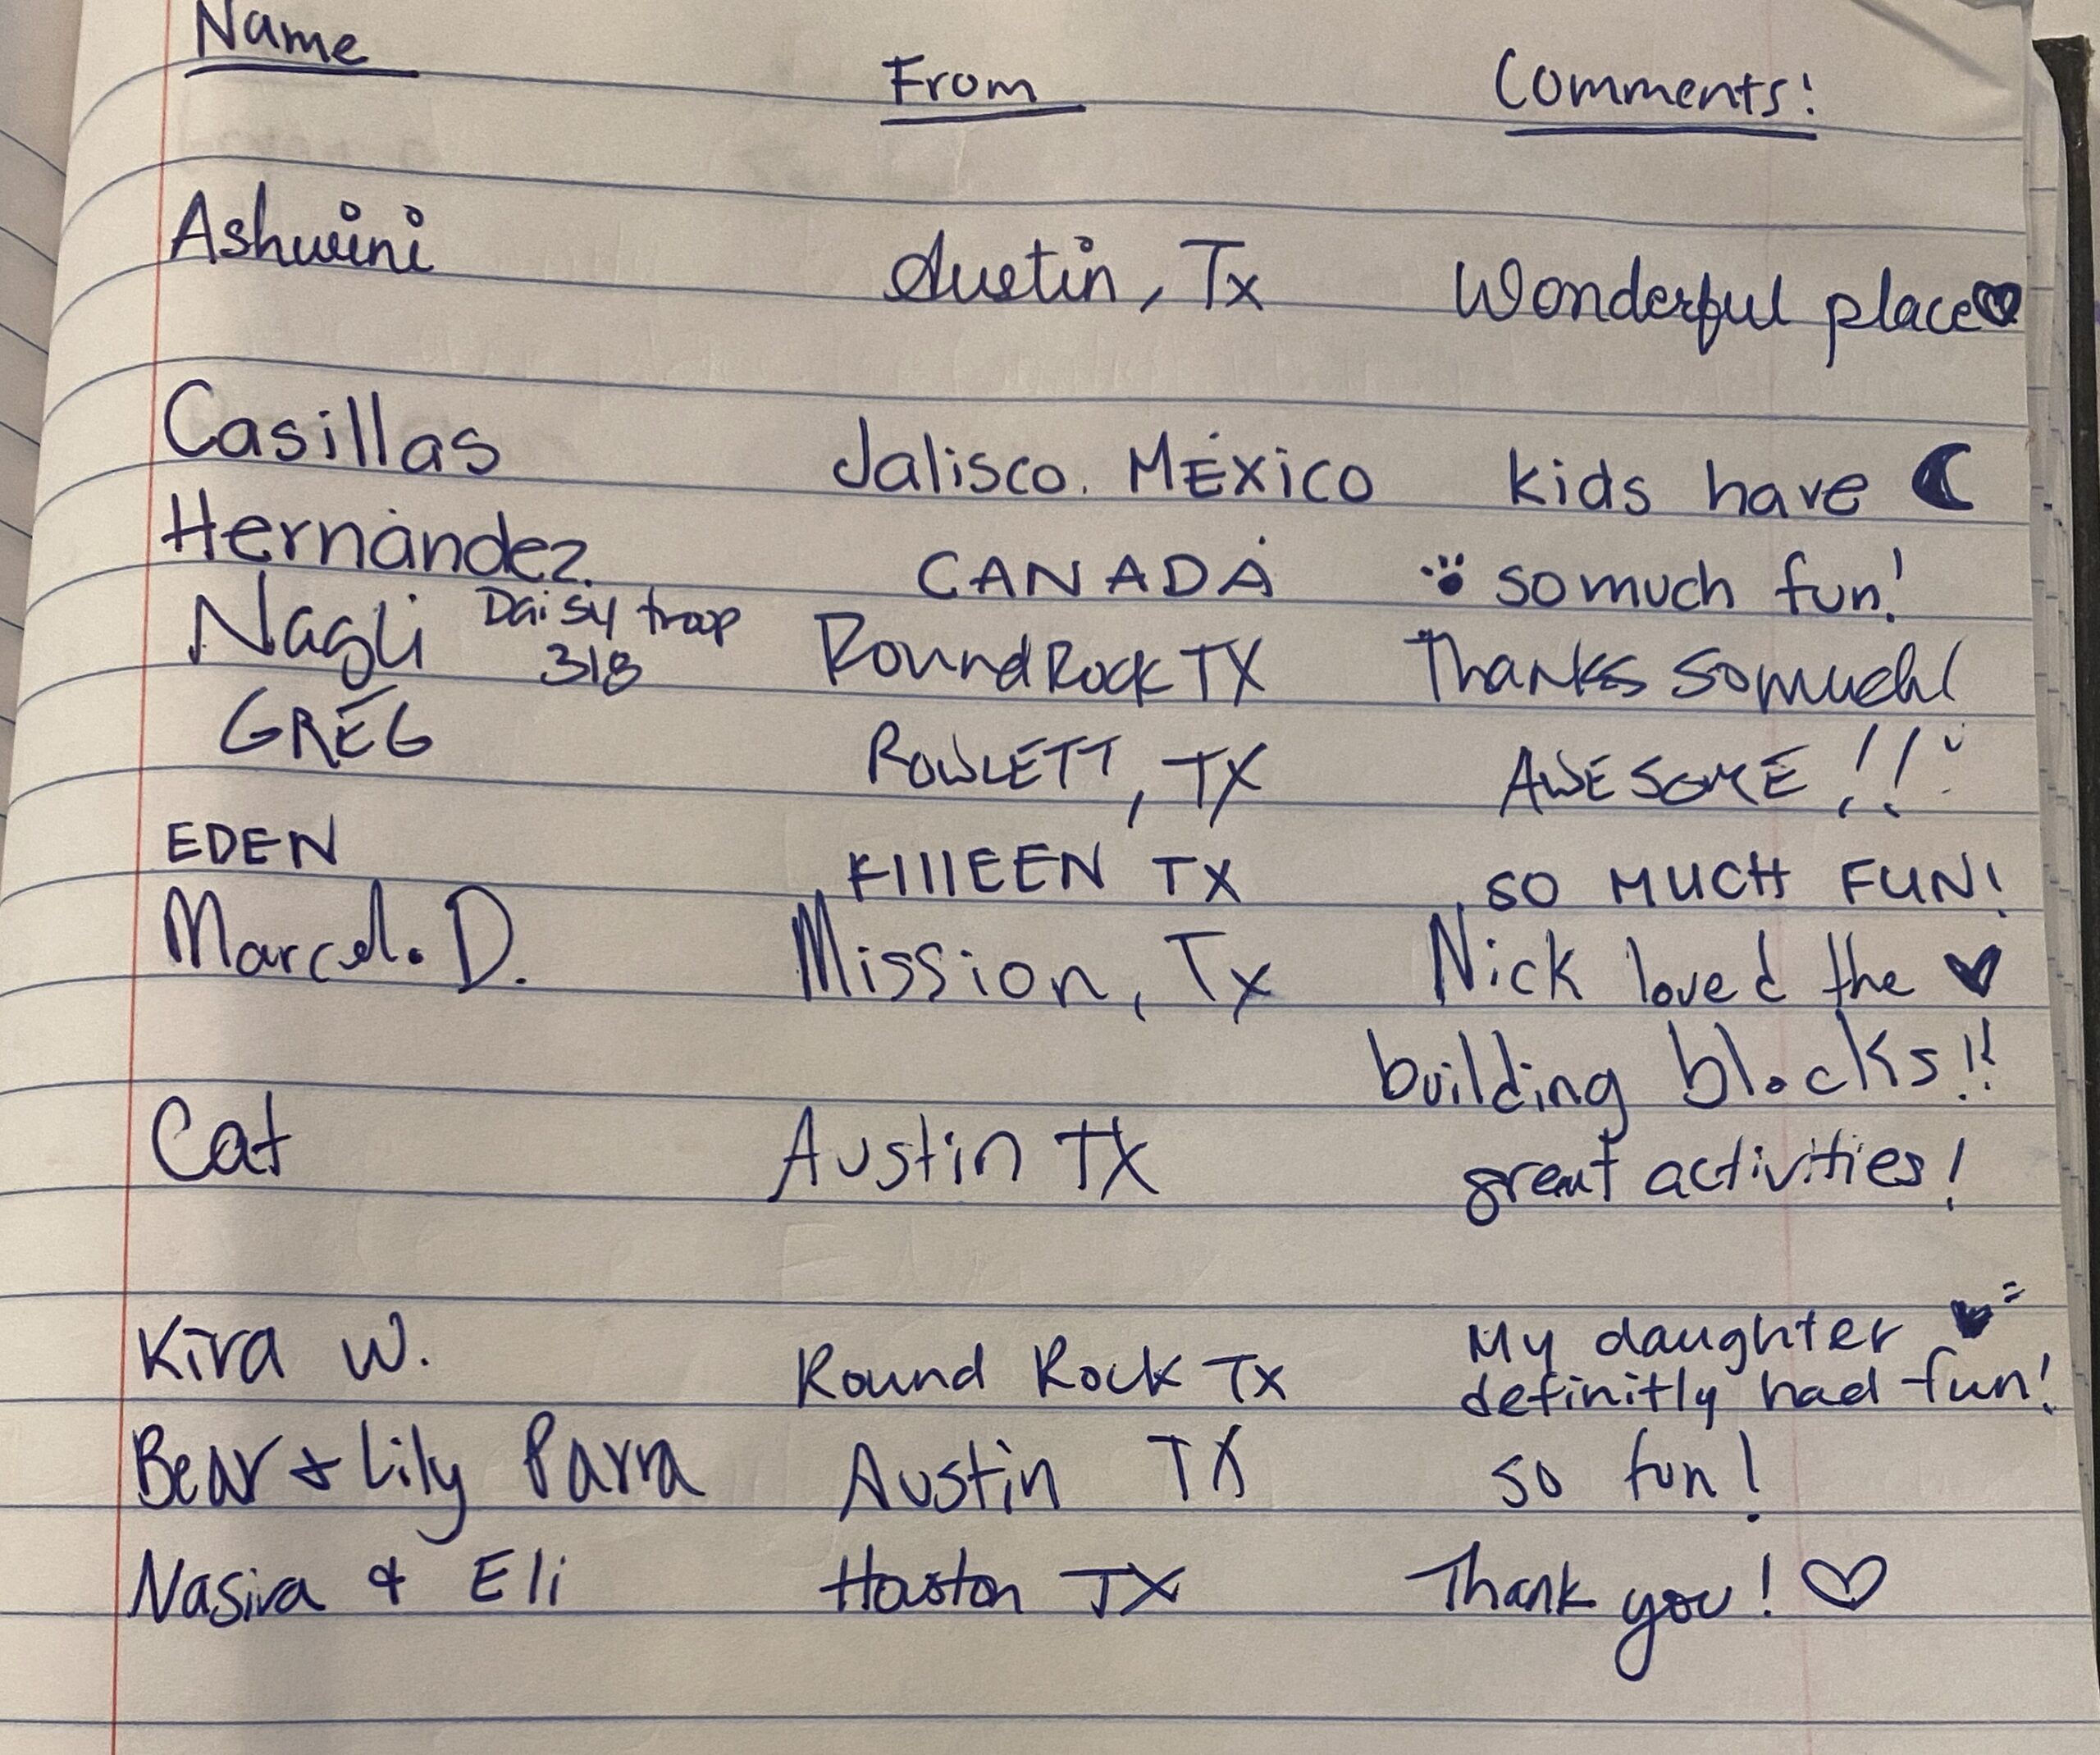 Name From Comments!
Ashwini Austin, Tx Wonderful place
Casillas Jalisco. MÉXICO kids have
Hernández. CANADÁ so much fun!
Nagli Daisy troop 318 Round Rock TX Thanks so much!
GREG ROWLETT, TX AWESOME!!
EDEN KIllEEN TX SO MUCH FUN!
Marcel. D. Mission, Tx Nick loved the
building blocks!!
Cat Austin TX great activities!
Kira W. Round Rock Tx My daughter
definitly had fun!
Bear & Lily Parra Austin TX so fun!
Nasira & Eli Houston TX Thank you!